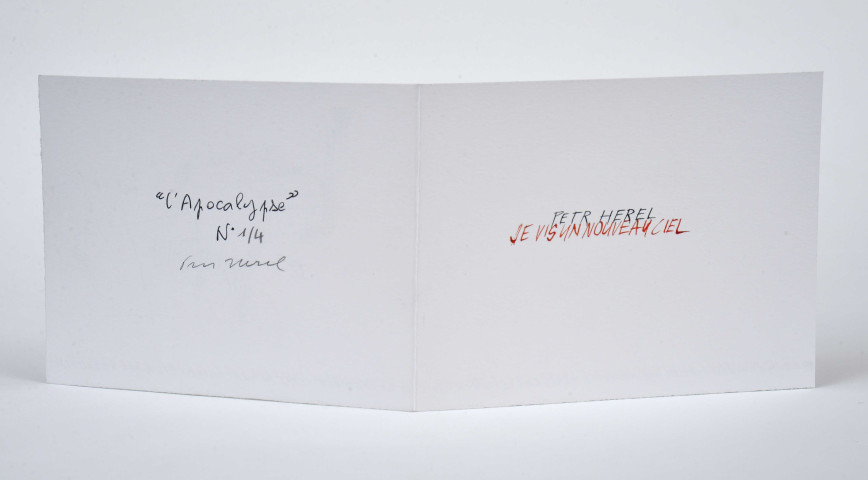 “l'Apocalypse”
N° 1/4
PETR HEREL
JE VIS UN NOUVEAU CIEL